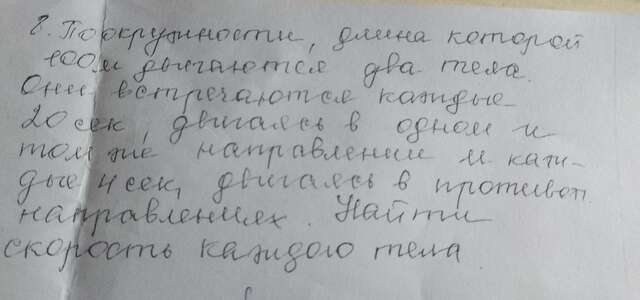 8. По окружности, длина которой
100м двигаются два тела.
Они встречаются каждые
20 сек, двигаясь в одном и
том же направлении и каж-
дые 4 сек, двигаясь в противоп.
направлениях. Найти
скорость каждого тела